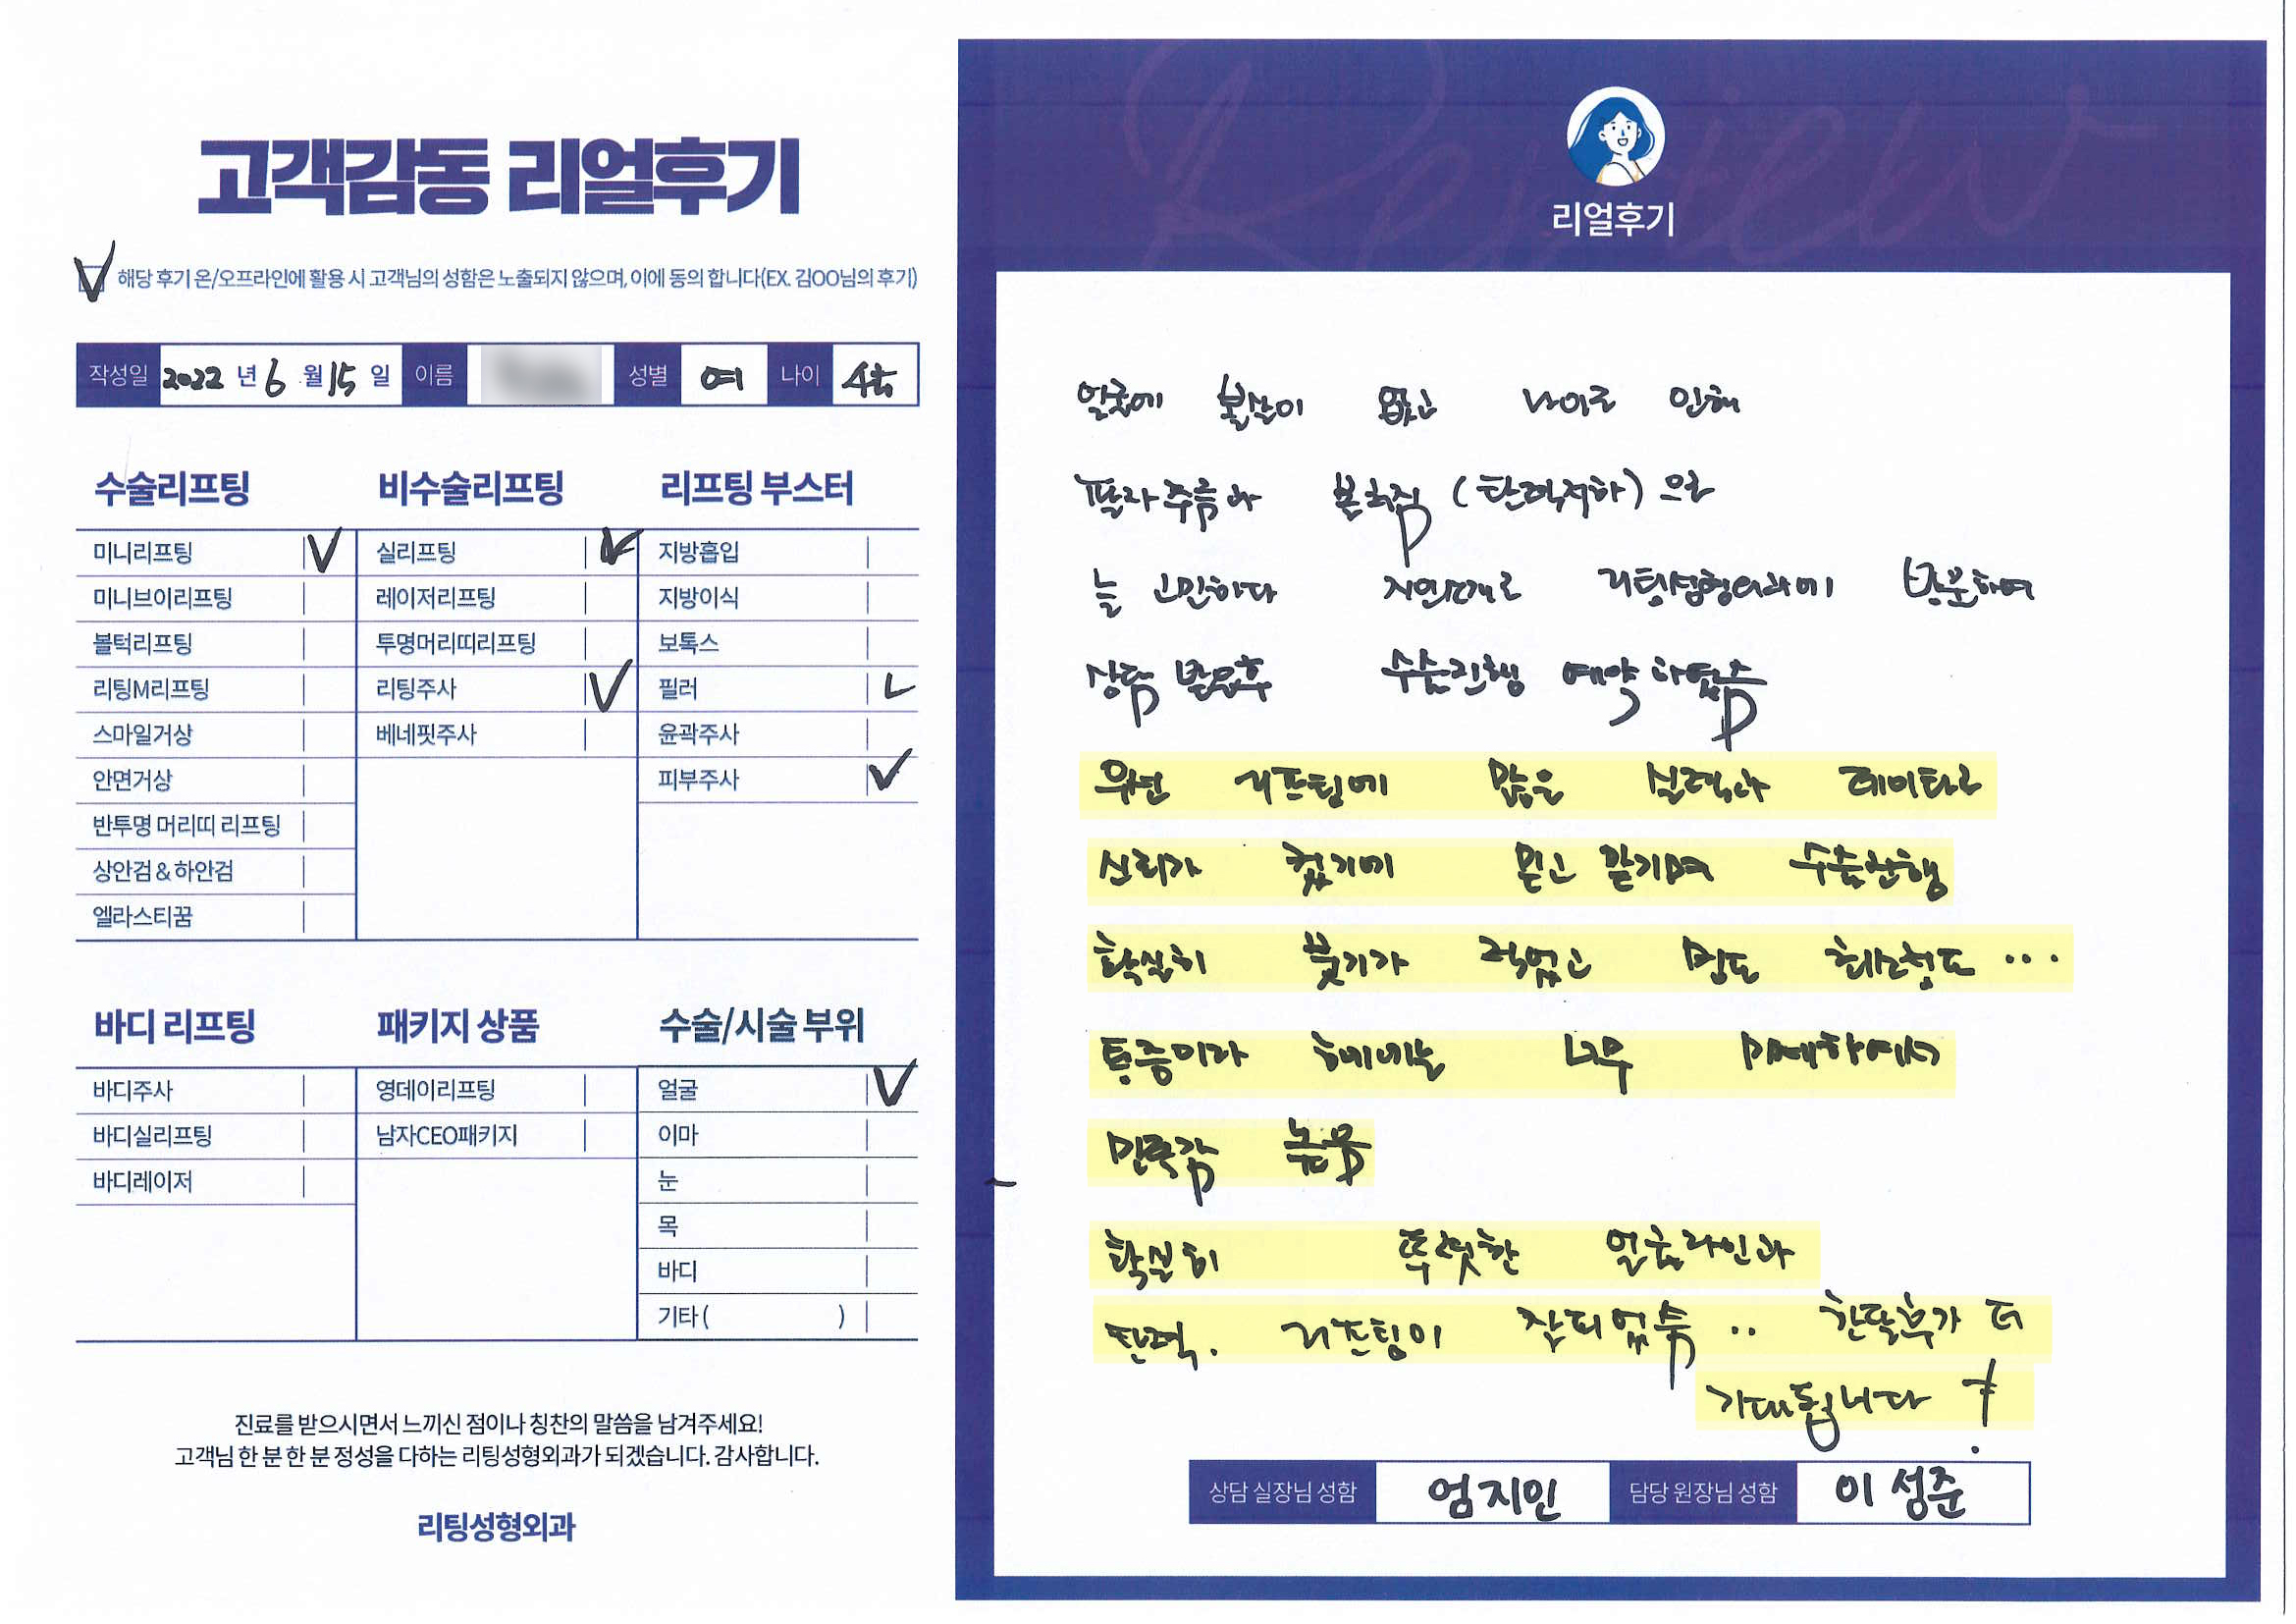 고객감동 리얼후기
해당 후기 온/오프라인에 활용 시 고객님의 성함은 노출되지 않으며, 이에 동의 합니다(EX. 김OO님의 후기)
작성일 2022 년 6 월 15 일 이름 성별 여 나이
수술리프팅
미니리프팅
미니브이리프팅
볼턱리프팅
리팅M리프팅
스마일거상
안면거상
반투명 머리띠 리프팅
상안검 & 하안검
엘라스티꿈
비수술리프팅
실리프팅
레이저리프팅
투명머리띠리프팅
리팅주사
베네핏주사
리프팅 부스터
지방흡입
지방이식
보톡스
필러
윤곽주사
피부주사
바디 리프팅
바디주사
바디실리프팅
바디레이저
패키지 상품
영데이리프팅
남자CEO패키지
수술/시술 부위
얼굴
이마
눈
목
바디
기타 ( )
진료를 받으시면서 느끼신 점이나 칭찬의 말씀을 남겨주세요!
고객님 한 분 한 분 정성을 다하는 리팅성형외과가 되겠습니다. 감사합니다.
리팅성형외과
Review
리얼후기
얼굴에 볼살이 없고 나이로 인해
팔자주름과 볼처짐 (탄력저하) 으로
늘 고민하다 지인소개로 리팅성형외과에 방문하여
상담 받은후 수술진행 예약 하였습
워낙 리프팅에 많은 실력과 데이타로
신뢰가 컸기에 믿고 맡기며 수술진행
확실히 붓기가 적었고 멍도 최소정도 ...
통증이라 하기에는 너무 미세하여서
만족감 높음
확실히 뚜렷한 얼굴라인과
탄력. 리프팅이 잘되었슴 .. 한달후가 더
기대됩니다 !
상담 실장님 성함 엄지인 담당 원장님 성함 이성준